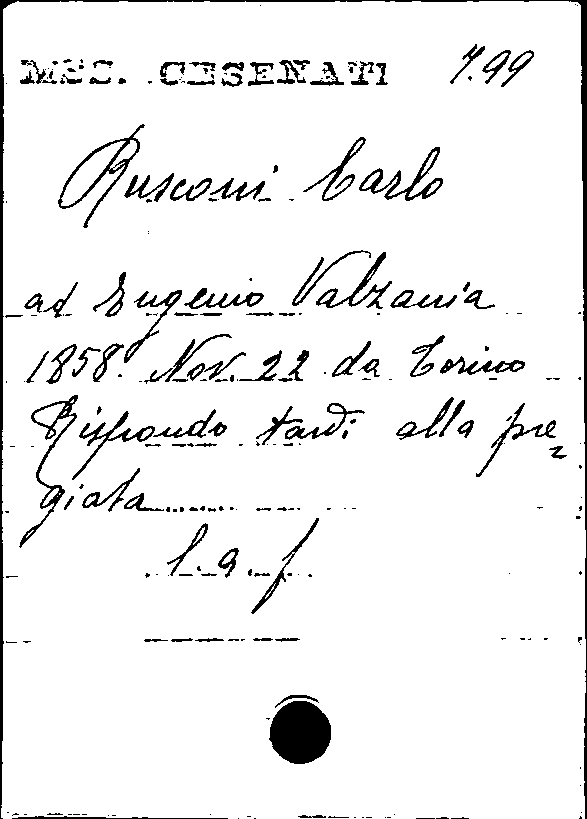 MSS. CESENATI 7.99
Rusconi Carlo
ad Eugenio Valzania
1858. Nov. 22 da Torino
Rispondo tardi alla pre=
giata......
l. a. f.